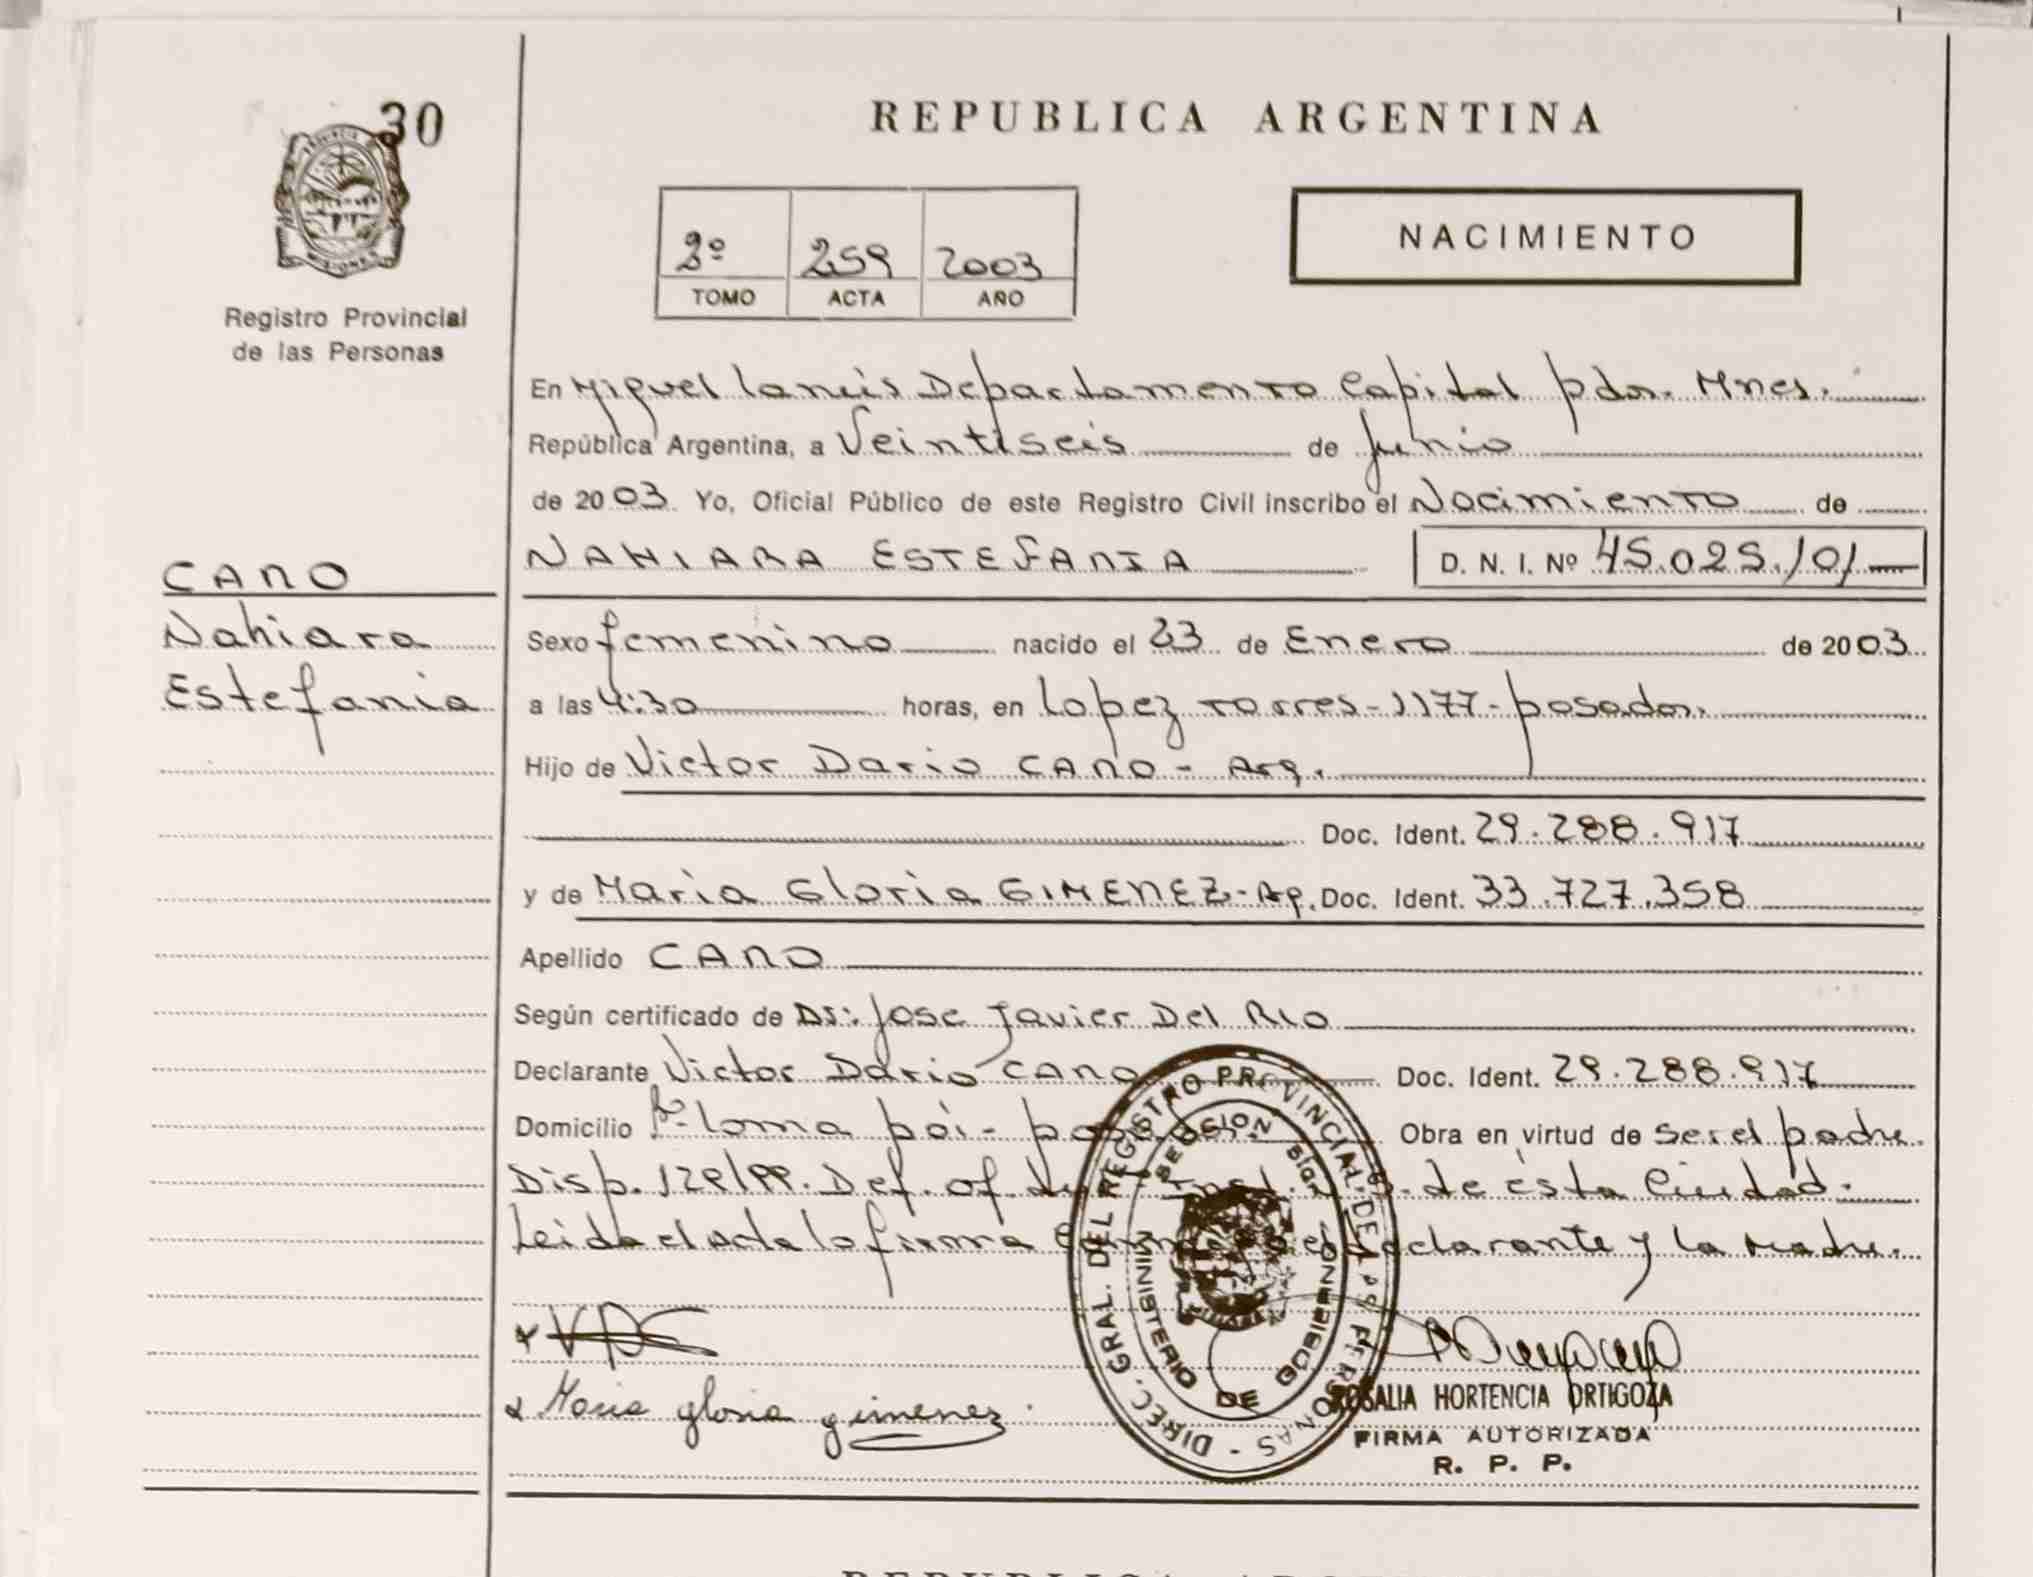 30
REPUBLICA ARGENTINA
PROVINCIA
MISIONES
Registro Provincial
de las Personas
2º 259 2003
TOMO ACTA AÑO
NACIMIENTO
En Miguel Lanús Departamento Capital pdas. Mnes.
República Argentina, a Veintiseis de Junio
de 2003. Yo, Oficial Público de este Registro Civil inscribo el Nacimiento de
NAHIARA ESTEFANIA D. N. I. Nº 45.025.101
CANO
Nahiara
Estefania
Sexo femenino nacido el 23 de Enero de 2003
a las 4:30 horas, en Lopez Torres-1177-posadas.
Hijo de Victor Dario CANO - Arg.
Doc. Ident. 29.288.917
y de Maria Gloria GIMENEZ-Ag. Doc. Ident. 33.727.358
Apellido CANO
Según certificado de Dr: Jose Javier Del Rio
Declarante Victor Dario CANO Doc. Ident. 29.288.917
Domicilio Bº Loma poi- Obra en virtud de ser el padre.
Disp. 129/99. Def. of. de esta Ciudad.
Leida el Acta la firma el declarante y la Madre.
Maria gloria gimenez
DIREC. GRAL. DEL REGISTRO PROVINCIAL DE LAS PERSONAS
MINISTERIO DE GOBIERNO
SECCION
ROSALIA HORTENCIA ORTIGOZA
FIRMA AUTORIZADA
R. P. P.